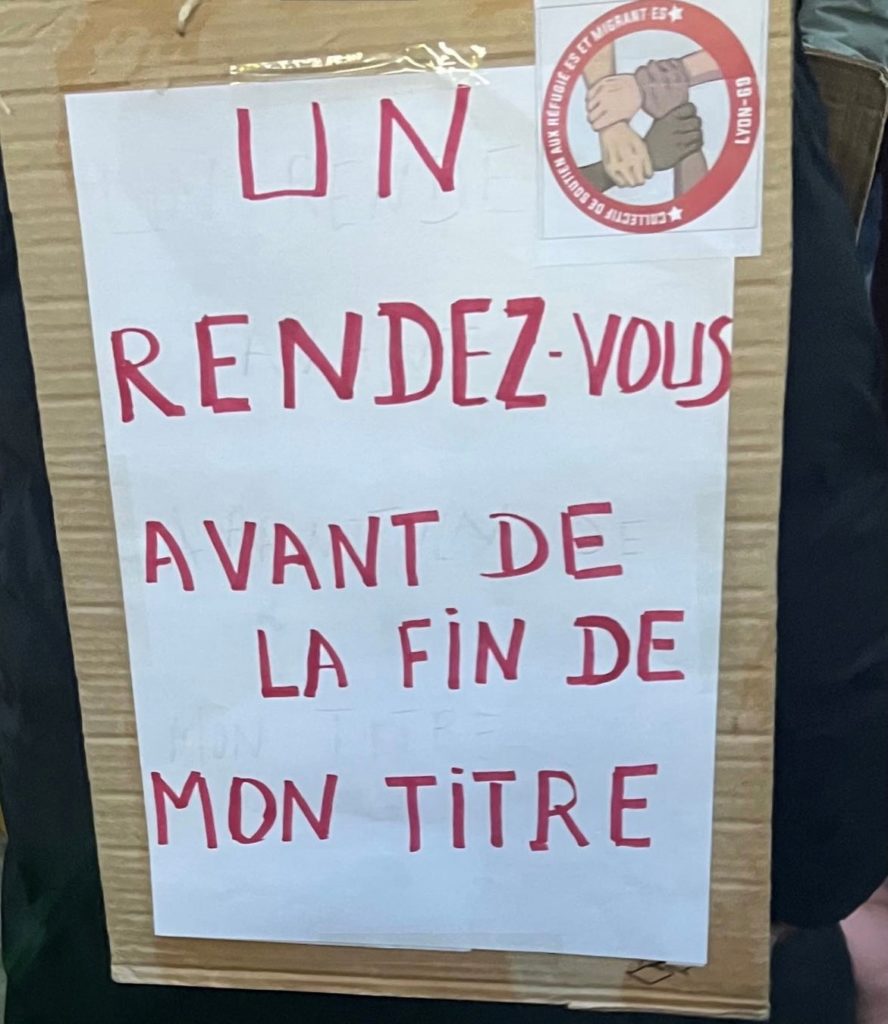 UN
RENDEZ-VOUS
AVANT DE
LA FiN DE
MON TiTRE
COLLECTIF DE SOUTIEN AUX RÉFUGIÉ ES ET MIGRANT ES
LYON-69